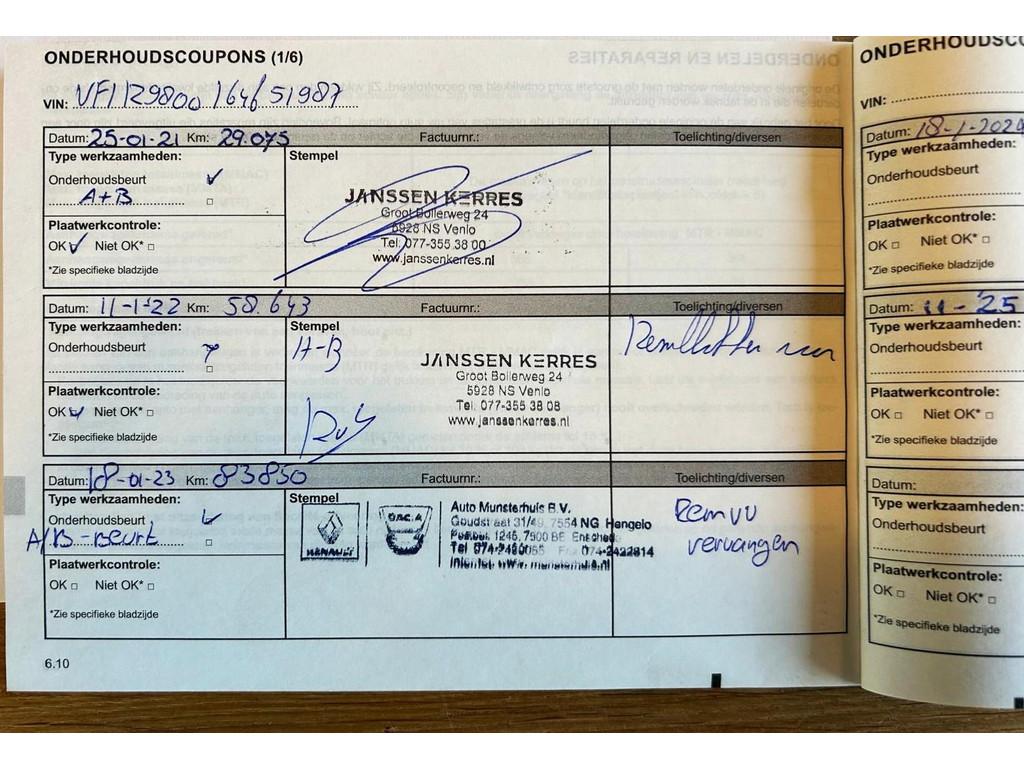 ONDERHOUDSCOUPONS (1/6)
VIN: VF1129800 164651987
Datum: 25-01-21 Km: 29.075 Factuurnr.: Toelichting/diversen
Type werkzaamheden: Stempel
Onderhoudsbeurt
A+B
Plaatwerkcontrole:
OK Niet OK*
*Zie specifieke bladzijde
JANSSEN KERRES
Groot Bollerweg 24
5928 NS Venlo
Tel. 077-355 38 00
www.janssenkerres.nl
Datum: 11-1-22 Km: 58.643 Factuurnr.: Toelichting/diversen
Type werkzaamheden: Stempel
Onderhoudsbeurt
A-B
Plaatwerkcontrole:
OK Niet OK*
*Zie specifieke bladzijde
JANSSEN KERRES
Groot Bollerweg 24
5928 NS Venlo
Tel. 077-355 38 08
www.janssenkerres.nl
Datum: 18-01-23 Km: 83850 Factuurnr.: Toelichting/diversen
Type werkzaamheden: Stempel
Onderhoudsbeurt
A/B-Beurt
Plaatwerkcontrole:
OK Niet OK*
*Zie specifieke bladzijde
RENAULT
DACIA
Auto Munsterhuis B.V.
31/49, 7554 NG Hengelo
1245, 7500 BE Enschede
Tel 074-2422814
Internet: www.munsterhuis.nl
Remvv
vervangen
6.10
ONDERHOUDSC
VIN:
Datum: 18-1-2024
Type werkzaamheden:
Onderhoudsbeurt
Plaatwerkcontrole:
OK Niet OK*
*Zie specifieke bladzijde
Datum: 11-'25
Type werkzaamheden:
Onderhoudsbeurt
Plaatwerkcontrole:
OK Niet OK*
*Zie specifieke bladzijde
Datum:
Type werkzaamheden:
Onderhoudsbeurt
Plaatwerkcontrole:
OK Niet OK*
*Zie specifieke bladzijde